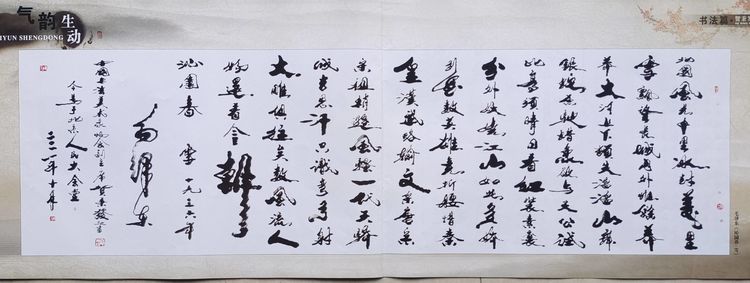 气韵生动
QIYUN SHENGDONG
书法篇
北国风光千里冰封万里
雪飘望长城内外惟余莽
莽大河上下顿失滔滔山舞
银蛇原驰蜡象欲与天公试
比高须晴日看红装素裹
分外妖娆江山如此多娇
引无数英雄竞折腰惜秦
皇汉武略输文采唐宗
宋祖稍逊风骚一代天骄
成吉思汗只识弯弓射
大雕俱往矣数风流人
物还看今朝
沁园春 雪 一九三六年
毛泽东
中国书法美术家协会副主席
北京人民大会堂
年十月